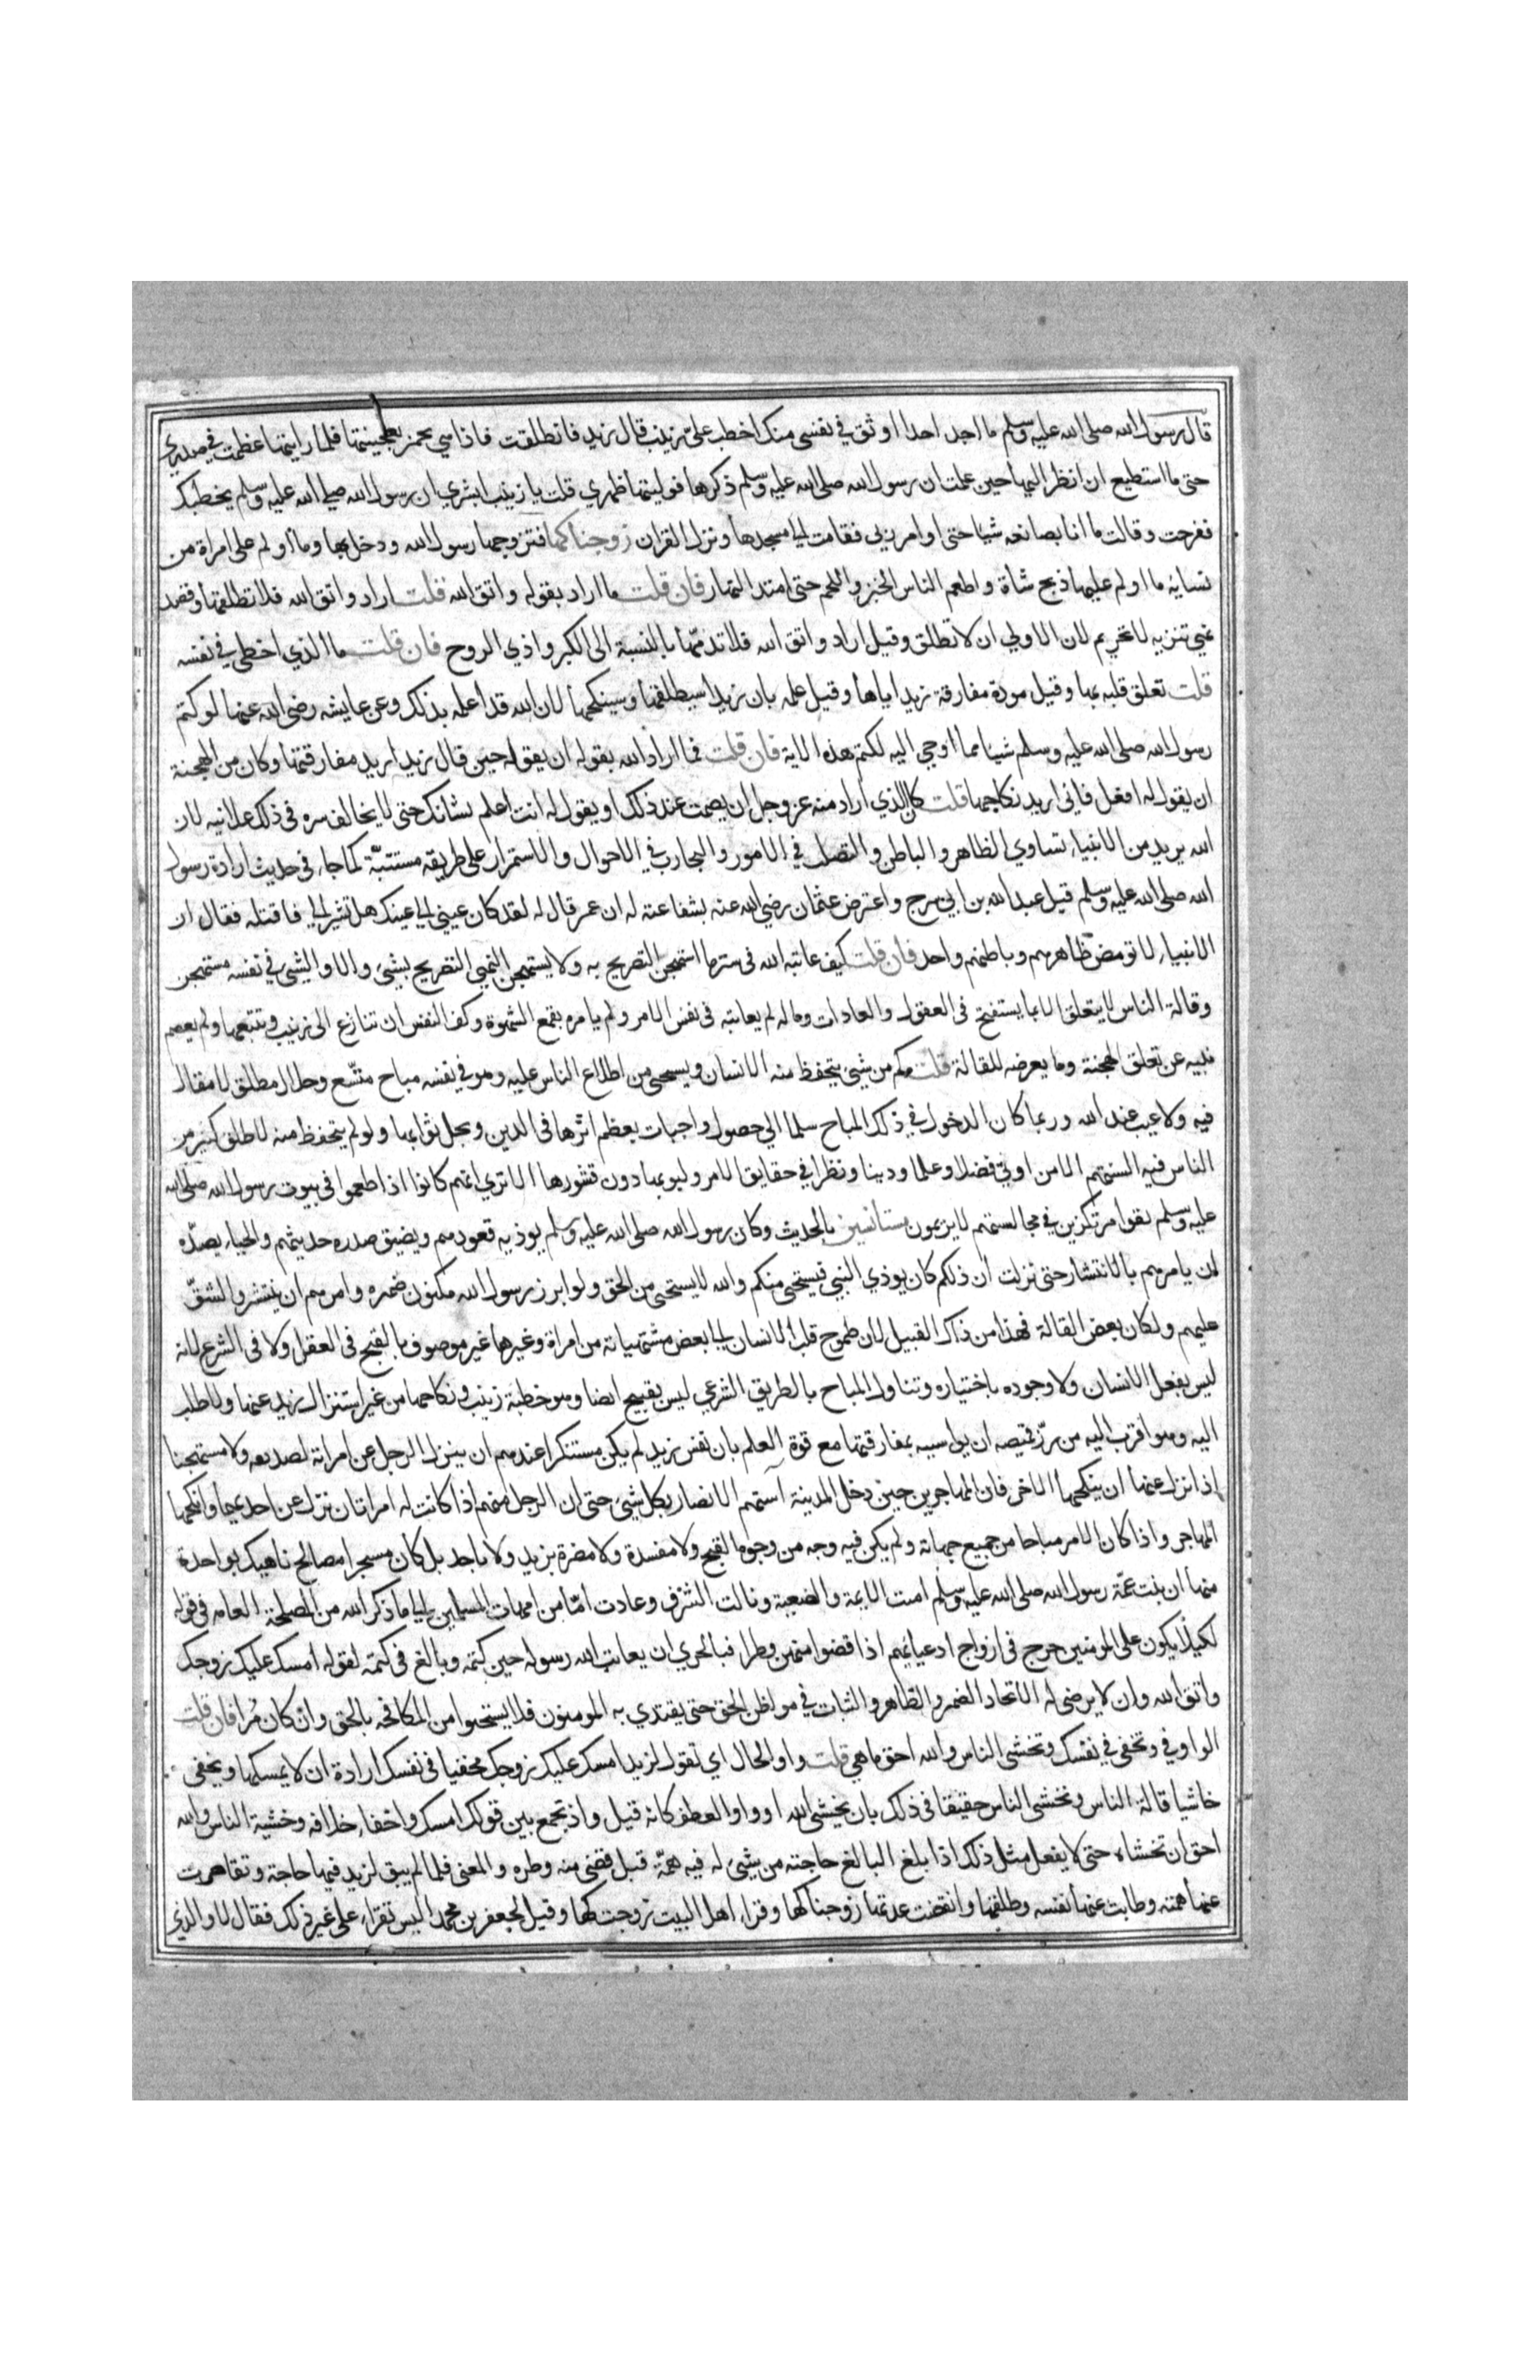 قال رسول الله صلى الله عليه وسلم ما اجد احدا اوثق في نفسي منك اخطب علىّ زينب قال زيد فانطلقت فاذا هي تخمر عجينتها فلما رايتها عظمت في صدري
حتى ما استطيع ان انظر اليها حين علمت ان رسول الله صلى الله عليه وسلم ذكرها فوليتها ظهري قلت يا زينب ابشري ان رسول الله صلى الله عليه وسلم يخطبك
ففرحت وقالت ما انا بصانعه شيئا حتى اوامر ربي فقامت الى مسجدها ونزل القران زوجناكها فتزوجها رسول الله ودخل بها وما اولم على امراة من
نسايه ما اولم عليها ذبح شاة واطعم الناس الخبز واللحم حتى امتد النهار فان قلت ما اراد بقوله واتق الله قلت اراد واتق الله فلا تطلقها وقصد
نهي تنزيه لا تحريم لان الاولى ان لا تطلق وقيل اراد واتق الله فلا تذمّها بالنسبة الى الكبر واذي الزوج فان قلت ما الذي اخفى في نفسه
قلت تعلق قلبه بها وقيل مودة مفارقة زيد اياها وقيل علمه بان زيدا سيطلقها وسينكحها لان الله قد اعلمه بذلك وعن عايشه رضي الله عنها لو كتم
رسول الله صلى الله عليه وسلم شيا مما اوحي اليه لكتم هذه الاية فان قلت فما اراد الله بقوله ان يقوله حين قال زيد اريد مفارقتها وكان من الهجنة
ان يقول له افعل فاني اريد نكاحها قلت كان الذي اراد منه عز وجل ان يصمت عند ذلك او يقول له انت اعلم بشانك حتى لا يخالف سره في ذلك علانيه لان
الله يريد من الانبياء تساوي الظاهر والباطن والتصلب في الامور والتجارب في الاحوال والاستمرار على طريقة مستتبّة كما جاء في حديث ارادة رسول
الله صلى الله عليه وسلم قتل عبد الله بن ابي سرح واعترض عثمان رضي الله عنه بشفاعته له ان عمر قال له لقد كان عيني الى عينك هل تشير الي فاقتله فقال ان
الانبياء لا تومض ظاهرهم وباطنهم واحد فان قلت كيف عاتبه الله في ستر ما استهجن التصريح به ولا يستهجن النبي التصريح بشيئ والا والشئ في نفسه مستهجن
وقالة الناس لا يتعلق الا بما يستقبح في العقول والعادات وما له لم يعاتبه في نفس الامر ولم يامره بقمع الشهوة وكف النفس ان تنازع الى زينب وتتبعها ولم يعصم
نبيه عن تعلق الهجنة وما يعرضه للقالة قلت كم من شيئ يتحفظ منه الانسان ويستحيى من اطلاع الناس عليه وهو في نفسه مباح متّسع وحلال مطلق لا مقال
فيه ولا عيب عند الله وربما كان الدخول في ذلك المباح سلما الي حصول واجبات يعظم اثرها في الدين ويجل ثوابها ولو لم يتحفظ منه لاطلق كثير من
الناس فيه السنتهم الا من اوتي فضلا وعلما ودينا ونظرا في حقايق الامر ولبوبها دون قشورها الا ترى انهم كانوا اذا طعموا في بيوت رسول الله صلى الله
عليه وسلم بقوا مرتكزين في مجالستهم لا يريمون مستانسين بالحديث وكان رسول الله صلى الله عليه وسلم يوذيه قعودهم ويضيق صدره حديثهم والحياء يصدّه
ان يامرهم بالانتشار حتى نزلت ان ذلكم كان يوذي النبي فيستحيى منكم والله لا يستحيى من الحق ولو ابرز رسول الله مكنون ضميره وامرهم ان ينتشروا لشقّ
عليهم ولكان بعض القالة فهذا من ذاك القبيل لان طموح قلب الانسان الى بعض مشتهياته من امراة وغيرها غير موصوف بالقبح في العقل ولا في الشرع لانه
ليس بفعل الانسان ولا وجوده باختياره وتناول المباح بالطريق الشرعي ليس بقبيح ايضا وهو خطبة زينب ونكاحها من غير استنزال زيد عنها ولا طلب
اليه وهو اقرب اليه من زرّ قميصه ان يواسيه بمفارقتها مع قوة العلم بان نفس زيد لم يكن مستنكرا عندهم ان ينزل الرجل عن امراته لصديقه ولا مستهجنا
اذا نزل عنها ان ينكحها الاخر فان المهاجرين حين دخل المدينة آستهم الانصار بكل شيئ حتى ان الرجل منهم اذا كانت له امراتان نزل عن احديهما وانكحها
المهاجر واذا كان الامر مباحا من جميع جهاته ولم يكن فيه وجه من وجوه القبح ولا مفسدة ولا مضرة بزيد ولا باحد بل كان مستجرا مصالح ناهيك بواحدة
منها ان بنت عمّة رسول الله صلى الله عليه وسلم امنت الايمة والضيعة ونالت الشرف وعادت امّا من امهات المسلمين الى ما ذكر الله من المصلحة العامه في قوله
لكيلا يكون على المومنين حرج في ازواج ادعيائهم اذا قضوا منهن وطرا فبالحري ان يعاتب الله رسوله حين كتمه وبالغ في كتمه لقوله امسك عليك زوجك
واتق الله وان لا يرضى له الا اتحاد الضمير والظاهر والثبات في مواطن الحق حتى يقتدي به المومنون فلا يستحيوا من المكافحة بالحق وان كان مُرا فان قلت
الواو في وتخفي في نفسك وتخشى الناس والله احق ما هي قلت واو الحال اي تقول لزيد امسك عليك زوجك مخفيا في نفسك ارادة ان لا يمسكها وتخفي
خاشيا قالة الناس وتخشى الناس حقيقا في ذلك بان يخشى الله او واو العطف كانه قيل واذ تجمع بين قولك امسك واخفاء خلافه وخشية الناس والله
احق ان تخشاه حتى لا يفعل مثل ذلك اذا بلغ البالغ حاجته من شيئ له فيه همّة قيل قضى منه وطره والمعنى فلما لم يبق لزيد فيها حاجة وتقاصرت
عنها همته وطابت عنها نفسه وطلقها وانقضت عدتها زوجناكها وقراء اهل البيت زوجتكها وقيل لجعفر بن محمد اليس تقراء على غير ذلك فقال لا والذي